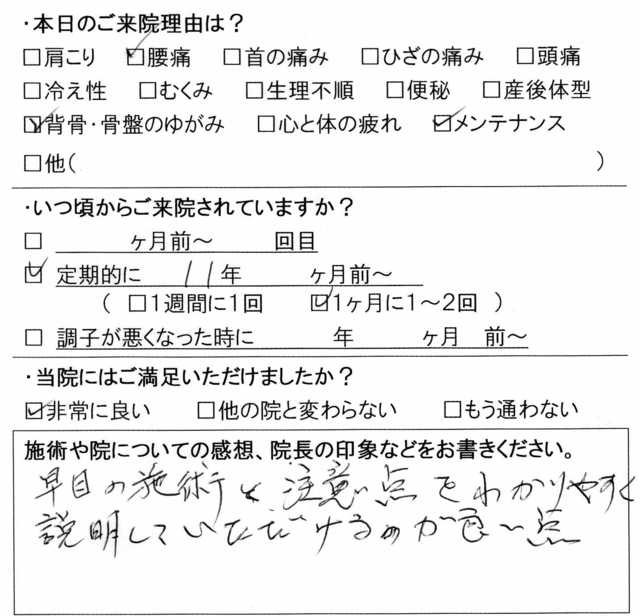 ・本日のご来院理由は？
□肩こり ☑腰痛 □首の痛み □ひざの痛み □頭痛
□冷え性 □むくみ □生理不順 □便秘 □産後体型
☑背骨・骨盤のゆがみ □心と体の疲れ ☑メンテナンス
□他（ ）
・いつ頃からご来院されていますか？
□ ヶ月前～ 回目
☑ 定期的に 11年 ヶ月前～
（ □1週間に1回 ☑1ヶ月に1～2回 ）
□ 調子が悪くなった時に 年 ヶ月 前～
・当院にはご満足いただけましたか？
☑非常に良い □他の院と変わらない □もう通わない
施術や院についての感想、院長の印象などをお書きください。
早目の施術と注意点をわかりやすく
説明していただけるのが良い点